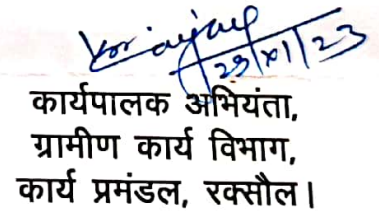 29/XI/23
कार्यपालक अभियंता,
ग्रामीण कार्य विभाग,
कार्य प्रमंडल, रक्सौल।